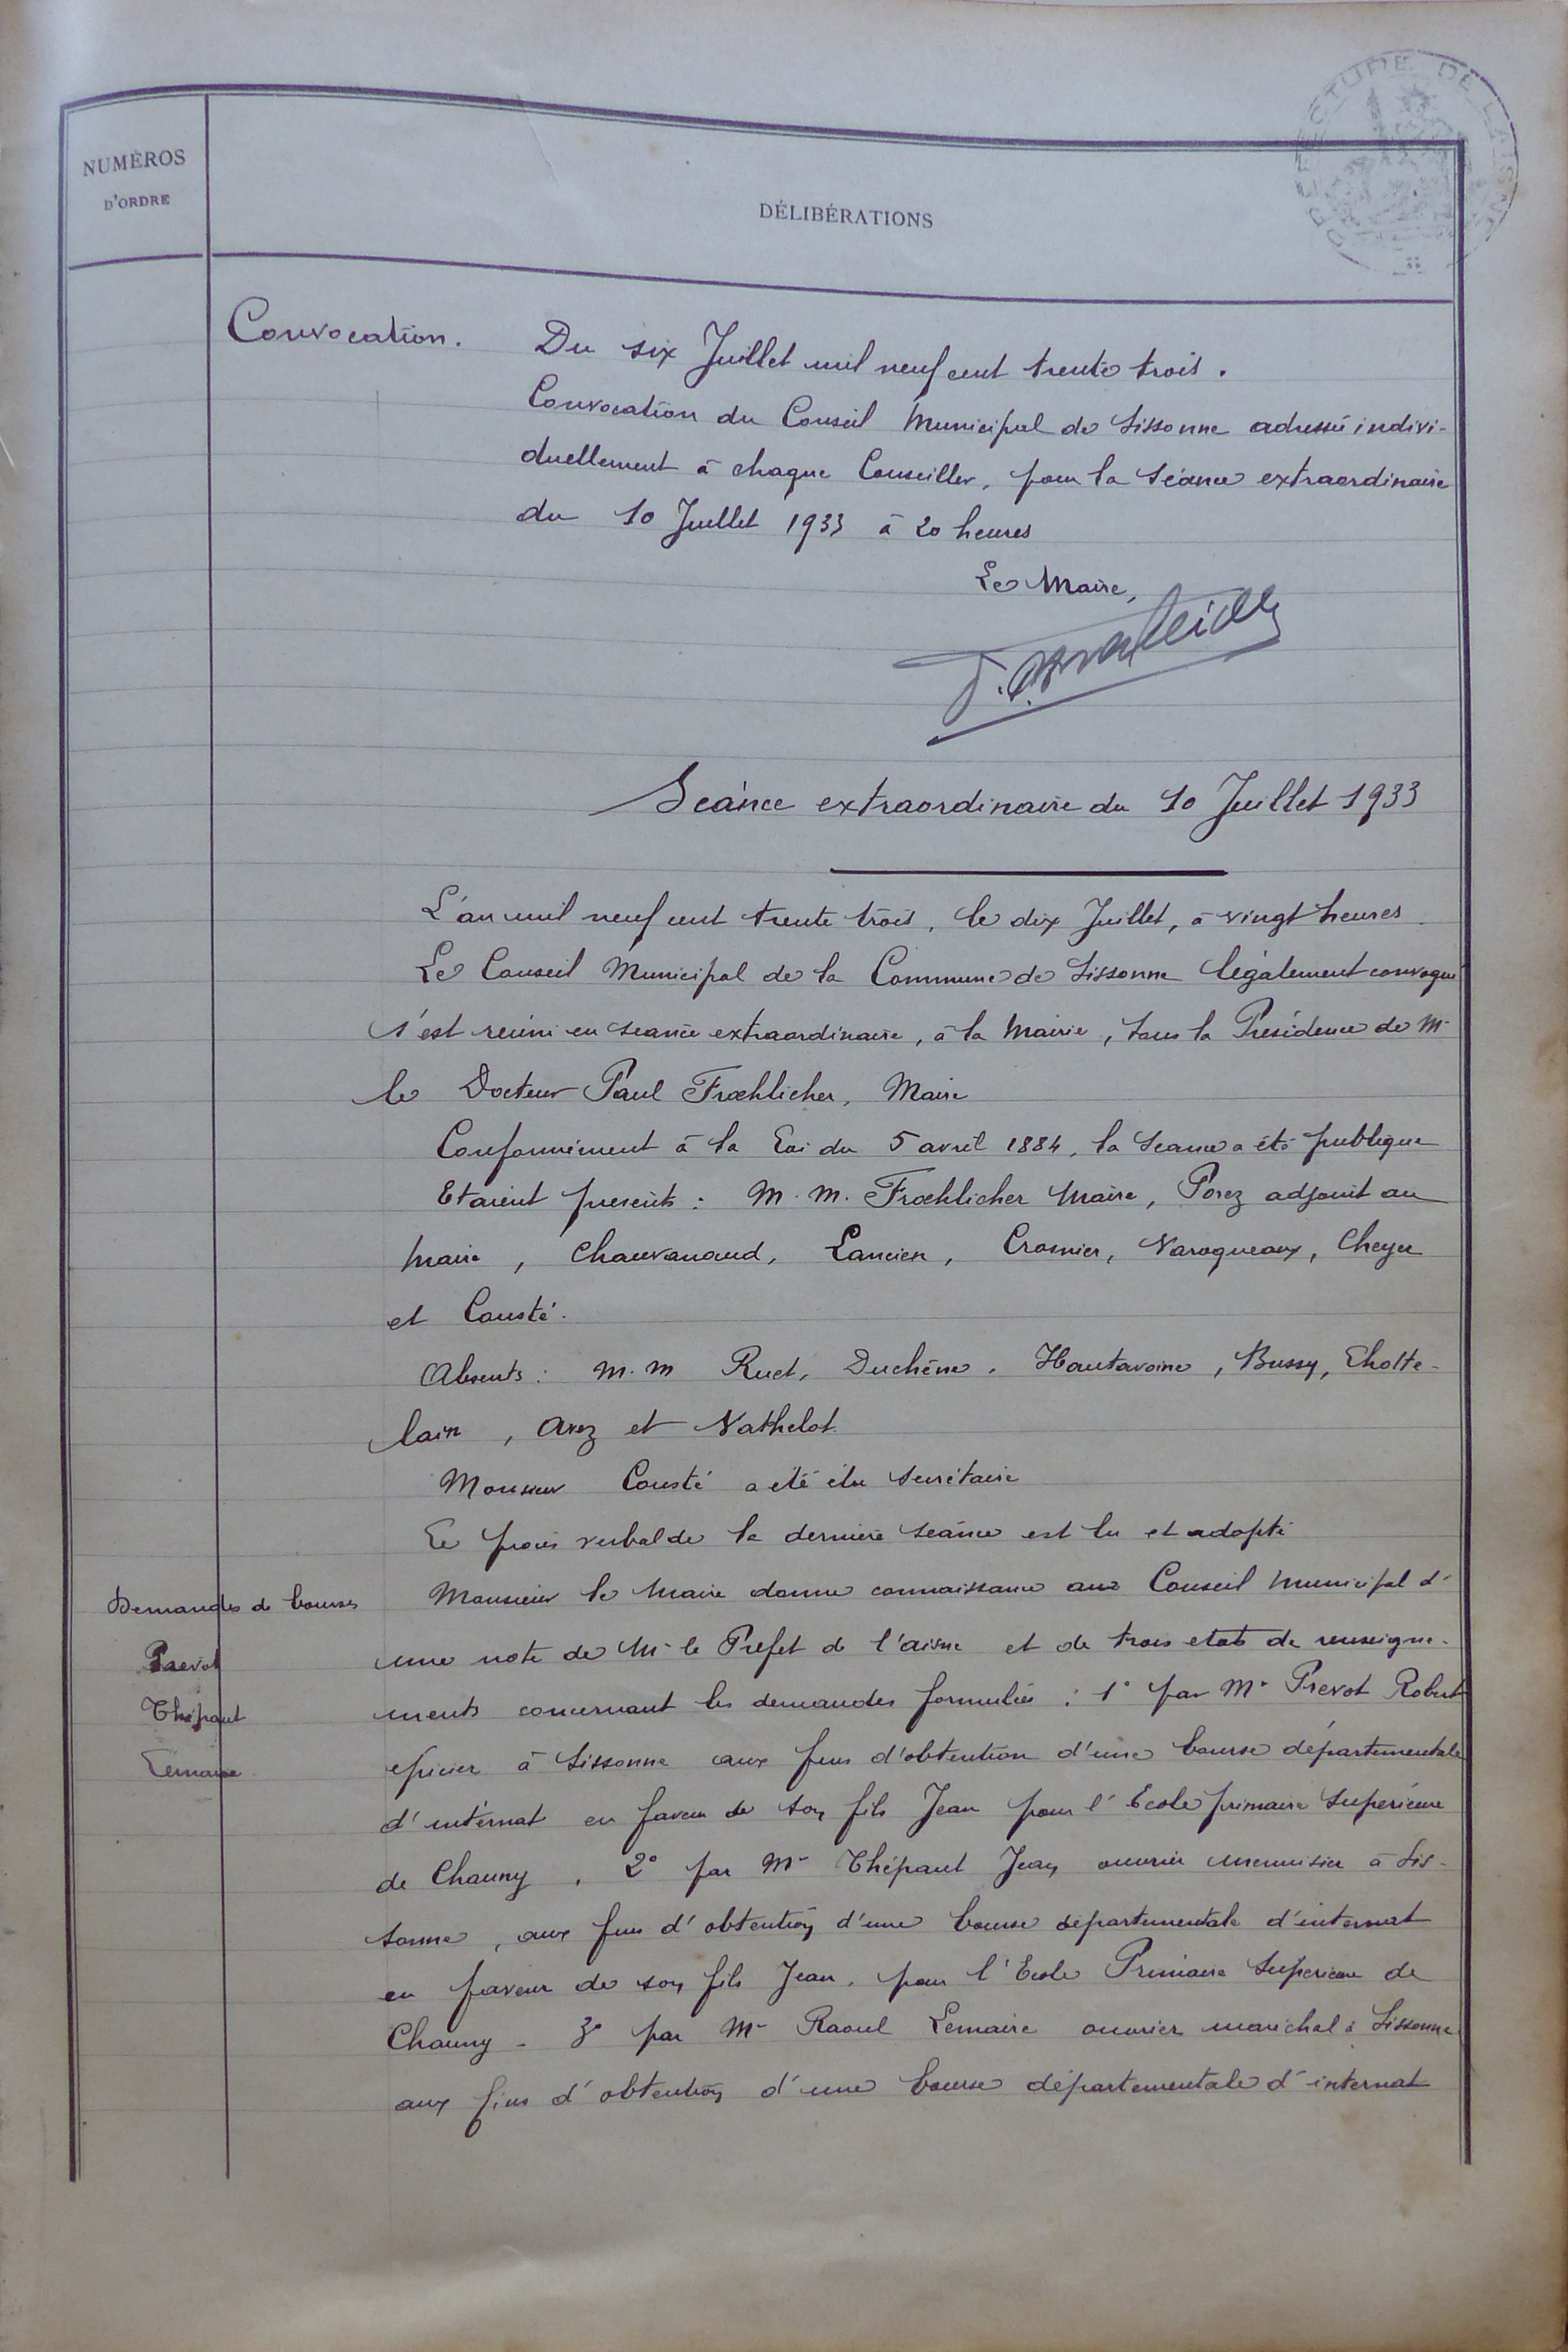 NUMÉROS
D'ORDRE
DÉLIBÉRATIONS
PRÉFECTURE DE L'AISNE
Convocation. Du six Juillet mil neuf cent trente trois.
Convocation du Conseil Municipal de Sissonne adressée indivi-
duellement à chaque Conseiller, pour la Séance extraordinaire
du 10 Juillet 1933 à 20 heures
Le Maire,
Seánce extraordinaire du 10 Juillet 1933
L'an mil neuf cent trente trois, le dix Juillet, à vingt heures
Le Conseil Municipal de la Commune de Sissonne légalement convoqué
s'est réuni en séance extraordinaire, à la Mairie, sous la Présidence de Mr
le Docteur Paul Frœhlicher, Maire
Conformément à la Loi du 5 avril 1884, la Séance a été publique
Etaient présents : M. M. Frœhlicher Maire, Porez adjoint au
Maire, Chauvanaud, Lancien, Crosnier, Varoqueaux, Cheyer
et Cousté.
Absents : M. M Ruet, Duchêne, Hautavoine, Bussy, Cholte-
lain, Avez et Nathelot
Monsieur Cousté a été élu Secrétaire
Le procès verbal de la dernière séance est lu et adopté
Demandes de bourses
Prevot
Thépaut
Lemaire
Monsieur le Maire donne connaissance au Conseil Municipal d'
une note de Mr le Prefet de l'aisne et de trois etats de renseigne-
ments concernant les demandes formulées : 1° par Mr Prevot Robert
epicier à Sissonne aux fins d'obtention d'une bourse départementale
d'internat en faveur de son fils Jean pour l'Ecole primaire Supérieure
de Chauny, 2° par Mr Thépaut Jean ouvrier menuisier à Sis-
sonne, aux fins d'obtention d'une bourse départementale d'internat
en faveur de son fils Jean, pour l'Ecole Primaire Superieure de
Chauny - 3° par Mr Raoul Lemaire ouvrier maréchal à Sissonne
aux fins d'obtention d'une bourse départementale d'internat